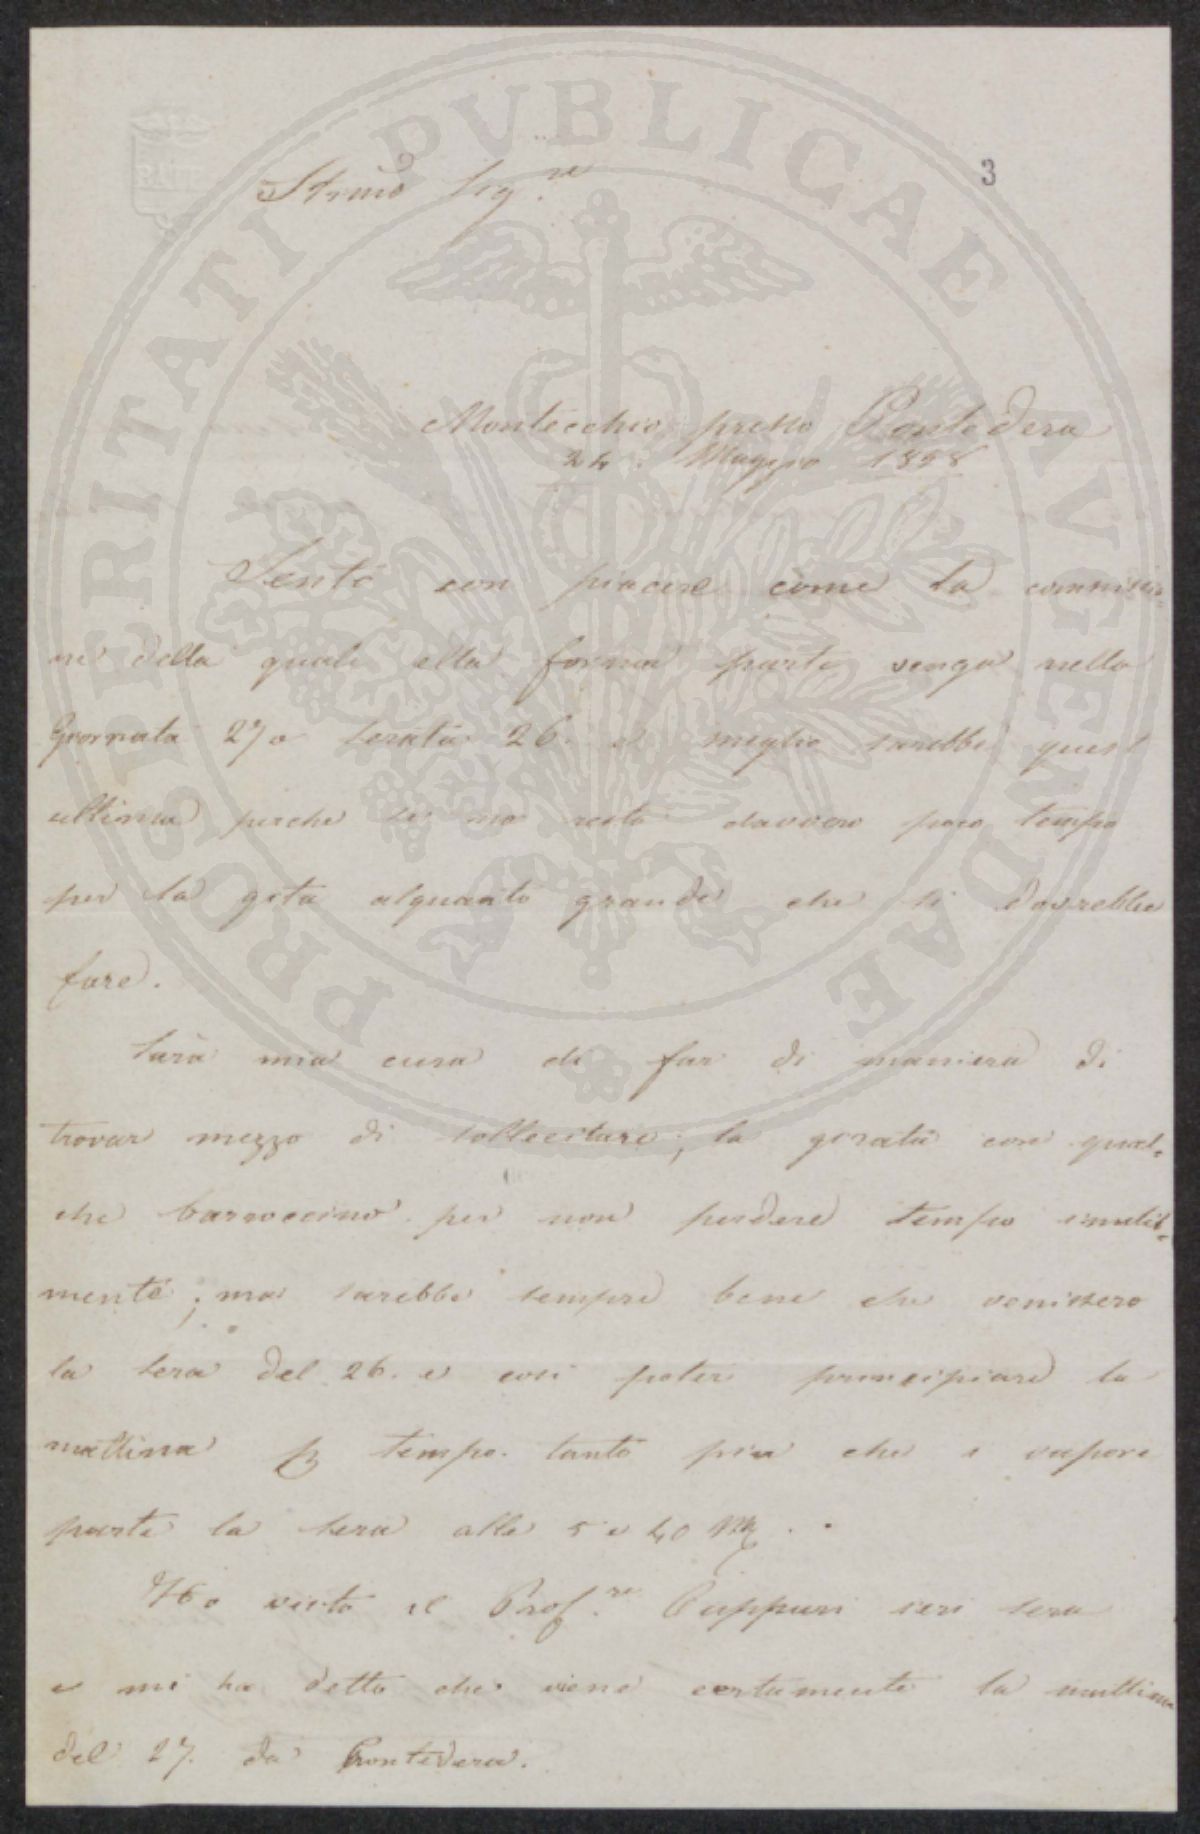 PROSPERITATI PVBLICAE AVGENDAE
BATH
3
Stimo Sig.re
Montecchio presso Pontedera
24. Maggio 1858
Sento con piacere come la commissio-
ne della quale ella forma parte venga nella
Giornata 27 o serata 26. e meglio sarebbe quest
ultima perche se no resta davvero poco tempo
per la gita alquanto grande che si dovrebbe
fare.
Sarà mia cura di far di maniera di
trovar mezzo di sollecitare, la girata con qual-
che barroccino per non perdere tempo inutil-
mente; ma sarebbe sempre bene che venissero
la sera del 26. e cosi poter principiare la
mattina per tempo. tanto più che i vapore
parte la sera alle 5 e 40 M.
Ho visto il Prof.re Cuppari ieri sera
e mi ha detto che viene certamente la mattina
del 27. da Pontedera.